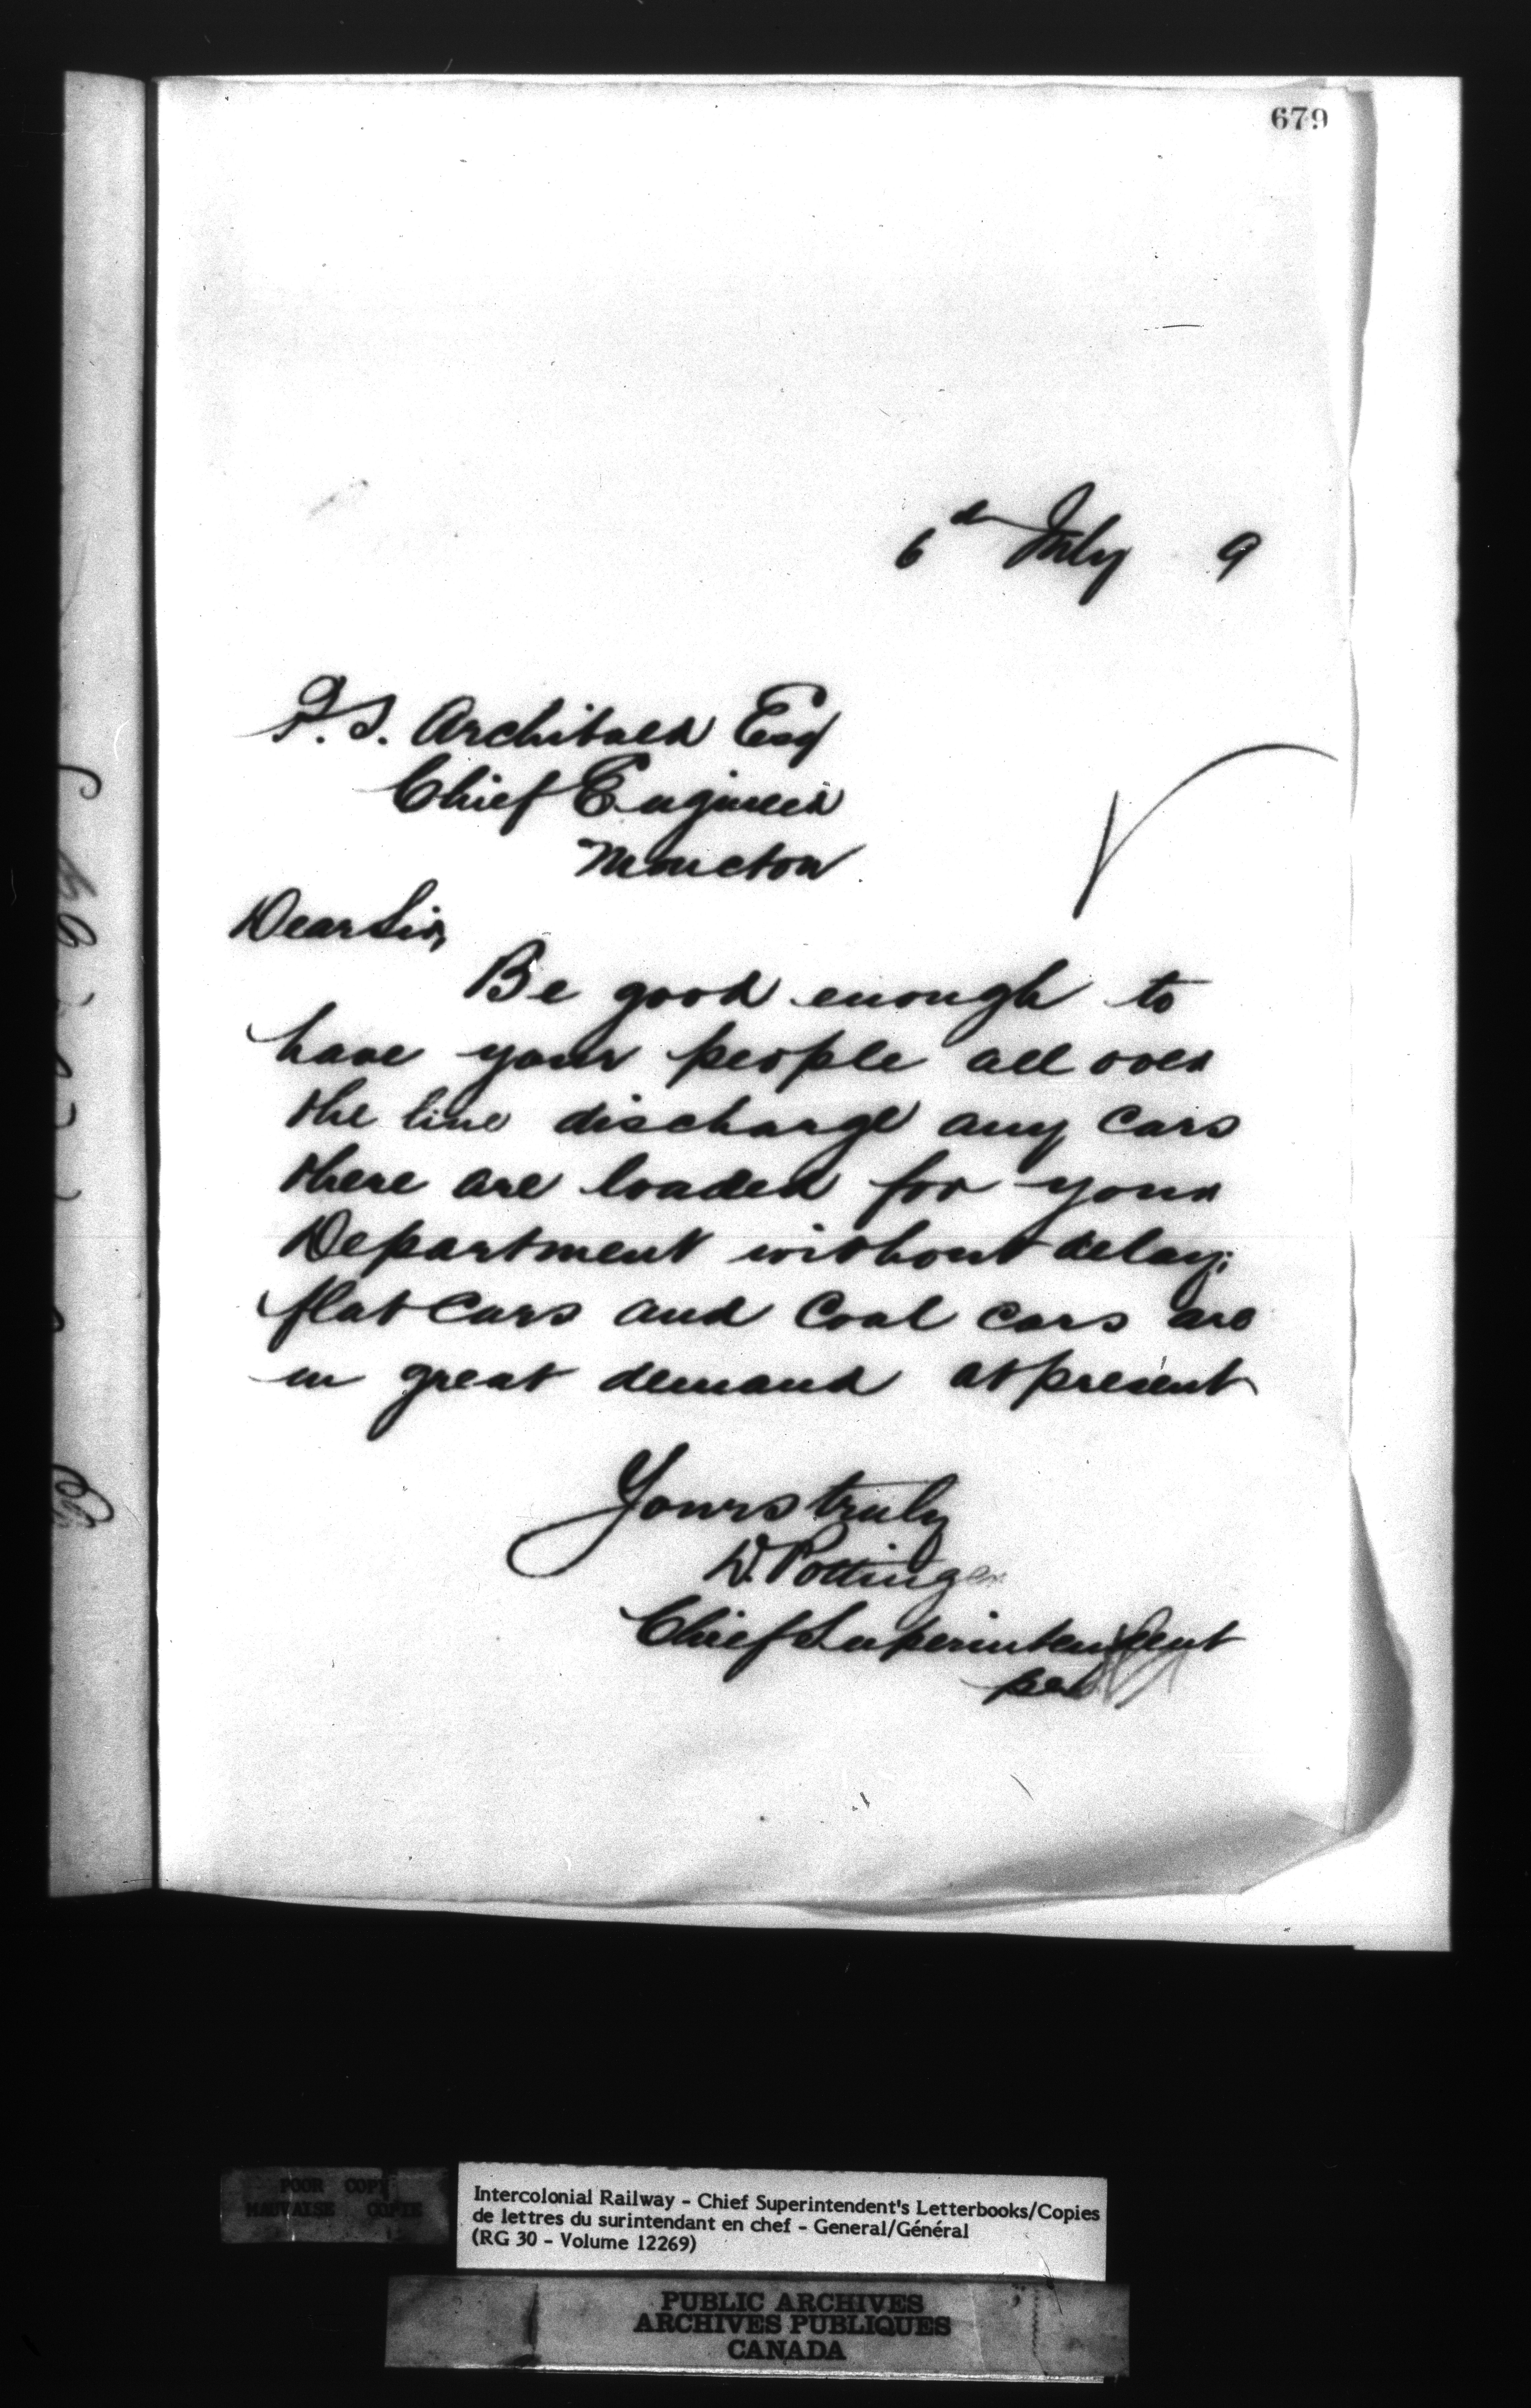 679
6th July 9
P.S. Archibald Esq
Chief Engineer
Moncton
Dear Sir,
Be good enough to
have your people all over
the line discharge any cars
there are loaded for your
Department without delay;
flat cars and coal cars are
in great demand at present
Yours truly
D. Pottinger
Chief Superintendent
per
POOR COPY
MAUVAISE COPIE
Intercolonial Railway - Chief Superintendent's Letterbooks/Copies
de lettres du surintendant en chef - General/Général
(RG 30 - Volume 12269)
PUBLIC ARCHIVES
ARCHIVES PUBLIQUES
CANADA